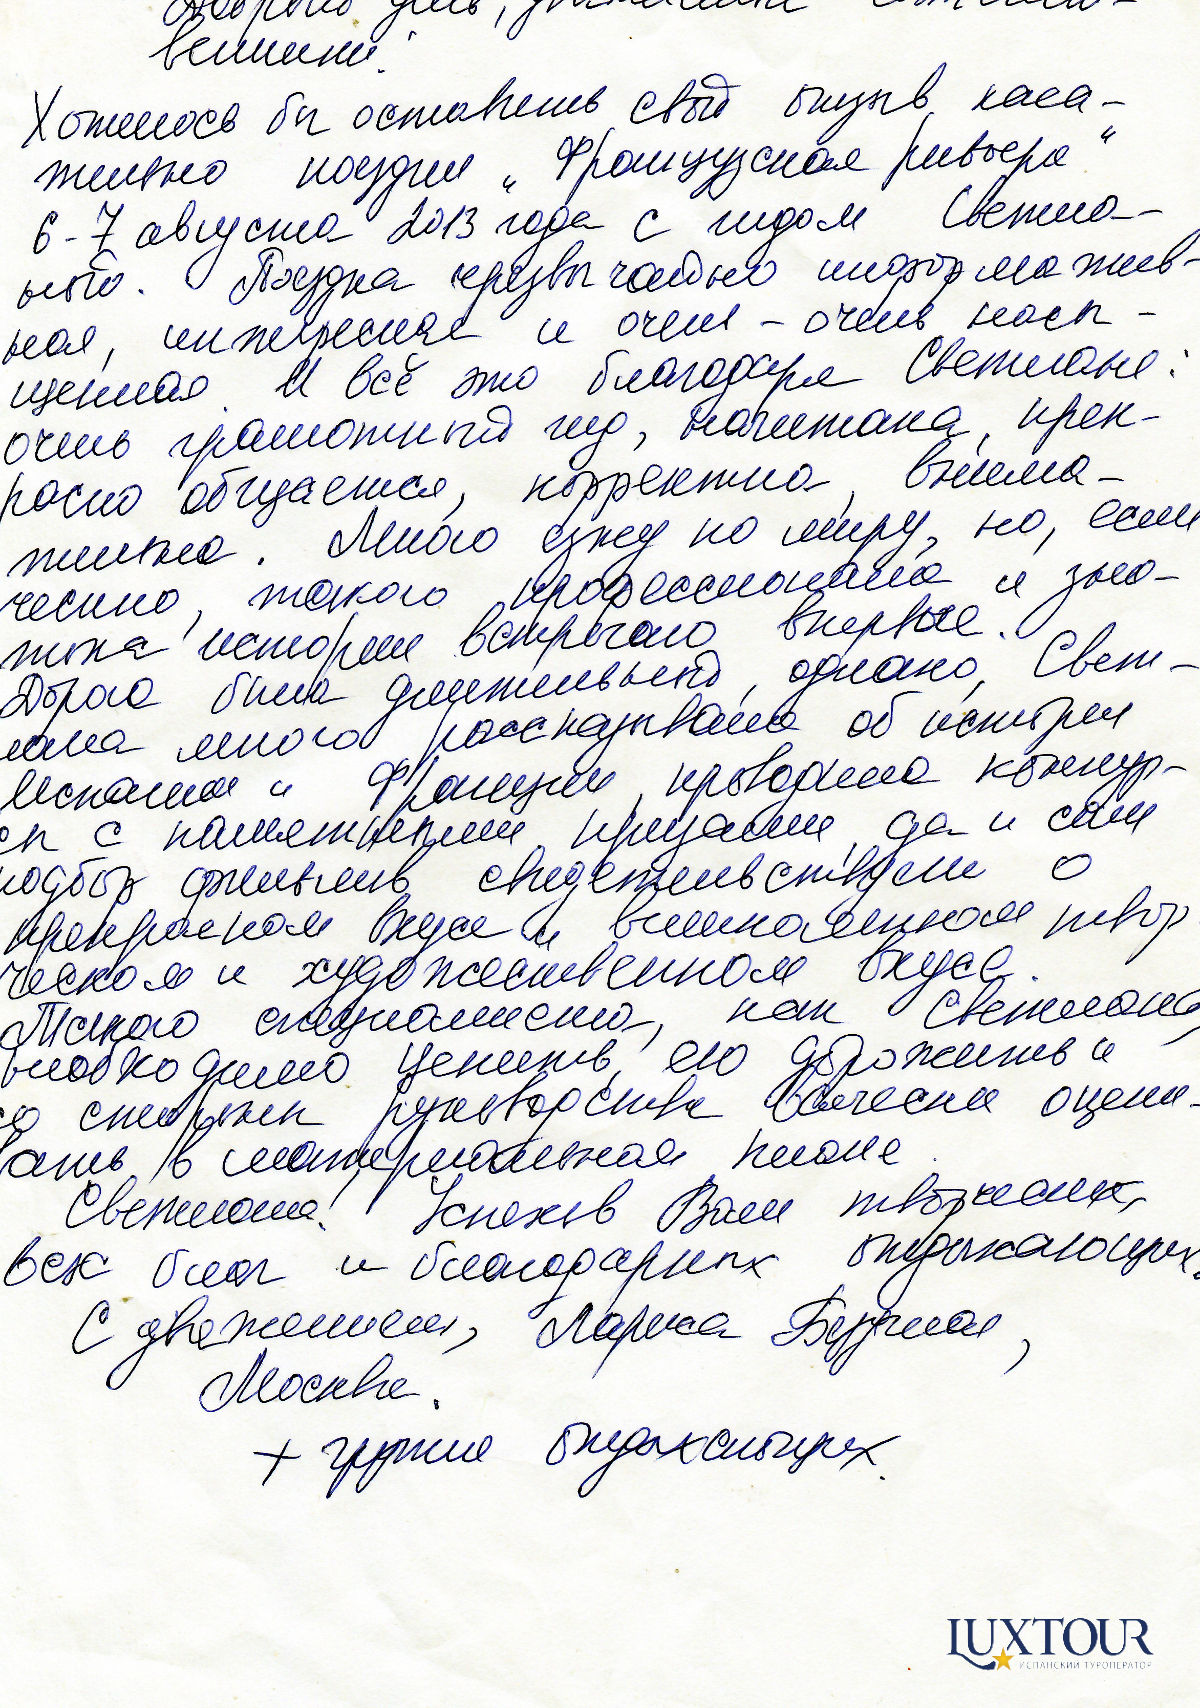 Добрый день, уважаемые соотече-
венники!
Хотелось бы оставить свой отзыв каса-
тельно поездки „Французская ривьера"
6-7 августа 2013 года с гидом Светла-
ной. Поездка чрезвычайно информатив-
ная, интересная и очень-очень насы-
щенная. И всё это благодаря Светлане:
очень грамотный гид, начитана, прек-
расно общается, корректна, внима-
тельна. Много езжу по миру, но, если
честно, такого профессионала и зна-
тока истории встречаю впервые.
Дорога была длительной, однако, Свет-
лана много рассказывала об истории
Испании и Франции, проводила конкур-
сы с памятными призами, да и сам
подбор фильмов свидетельствуем о
прекрасном вкусе и великолепном твор
ческом и художественном вкусе.
Такого специалиста, как Светлана,
необходимо ценить, ею дорожить и
со стороны руководства всячески оцени-
вать в материальном плане.
Светлана! Успехов Вам творческих,
всех благ и благодарных отдыхающих.
С уважением, Лариса
Москва.
+ группа отдыхающих.
LUXTOUR
ИСПАНСКИЙ ТУРОПЕРАТОР